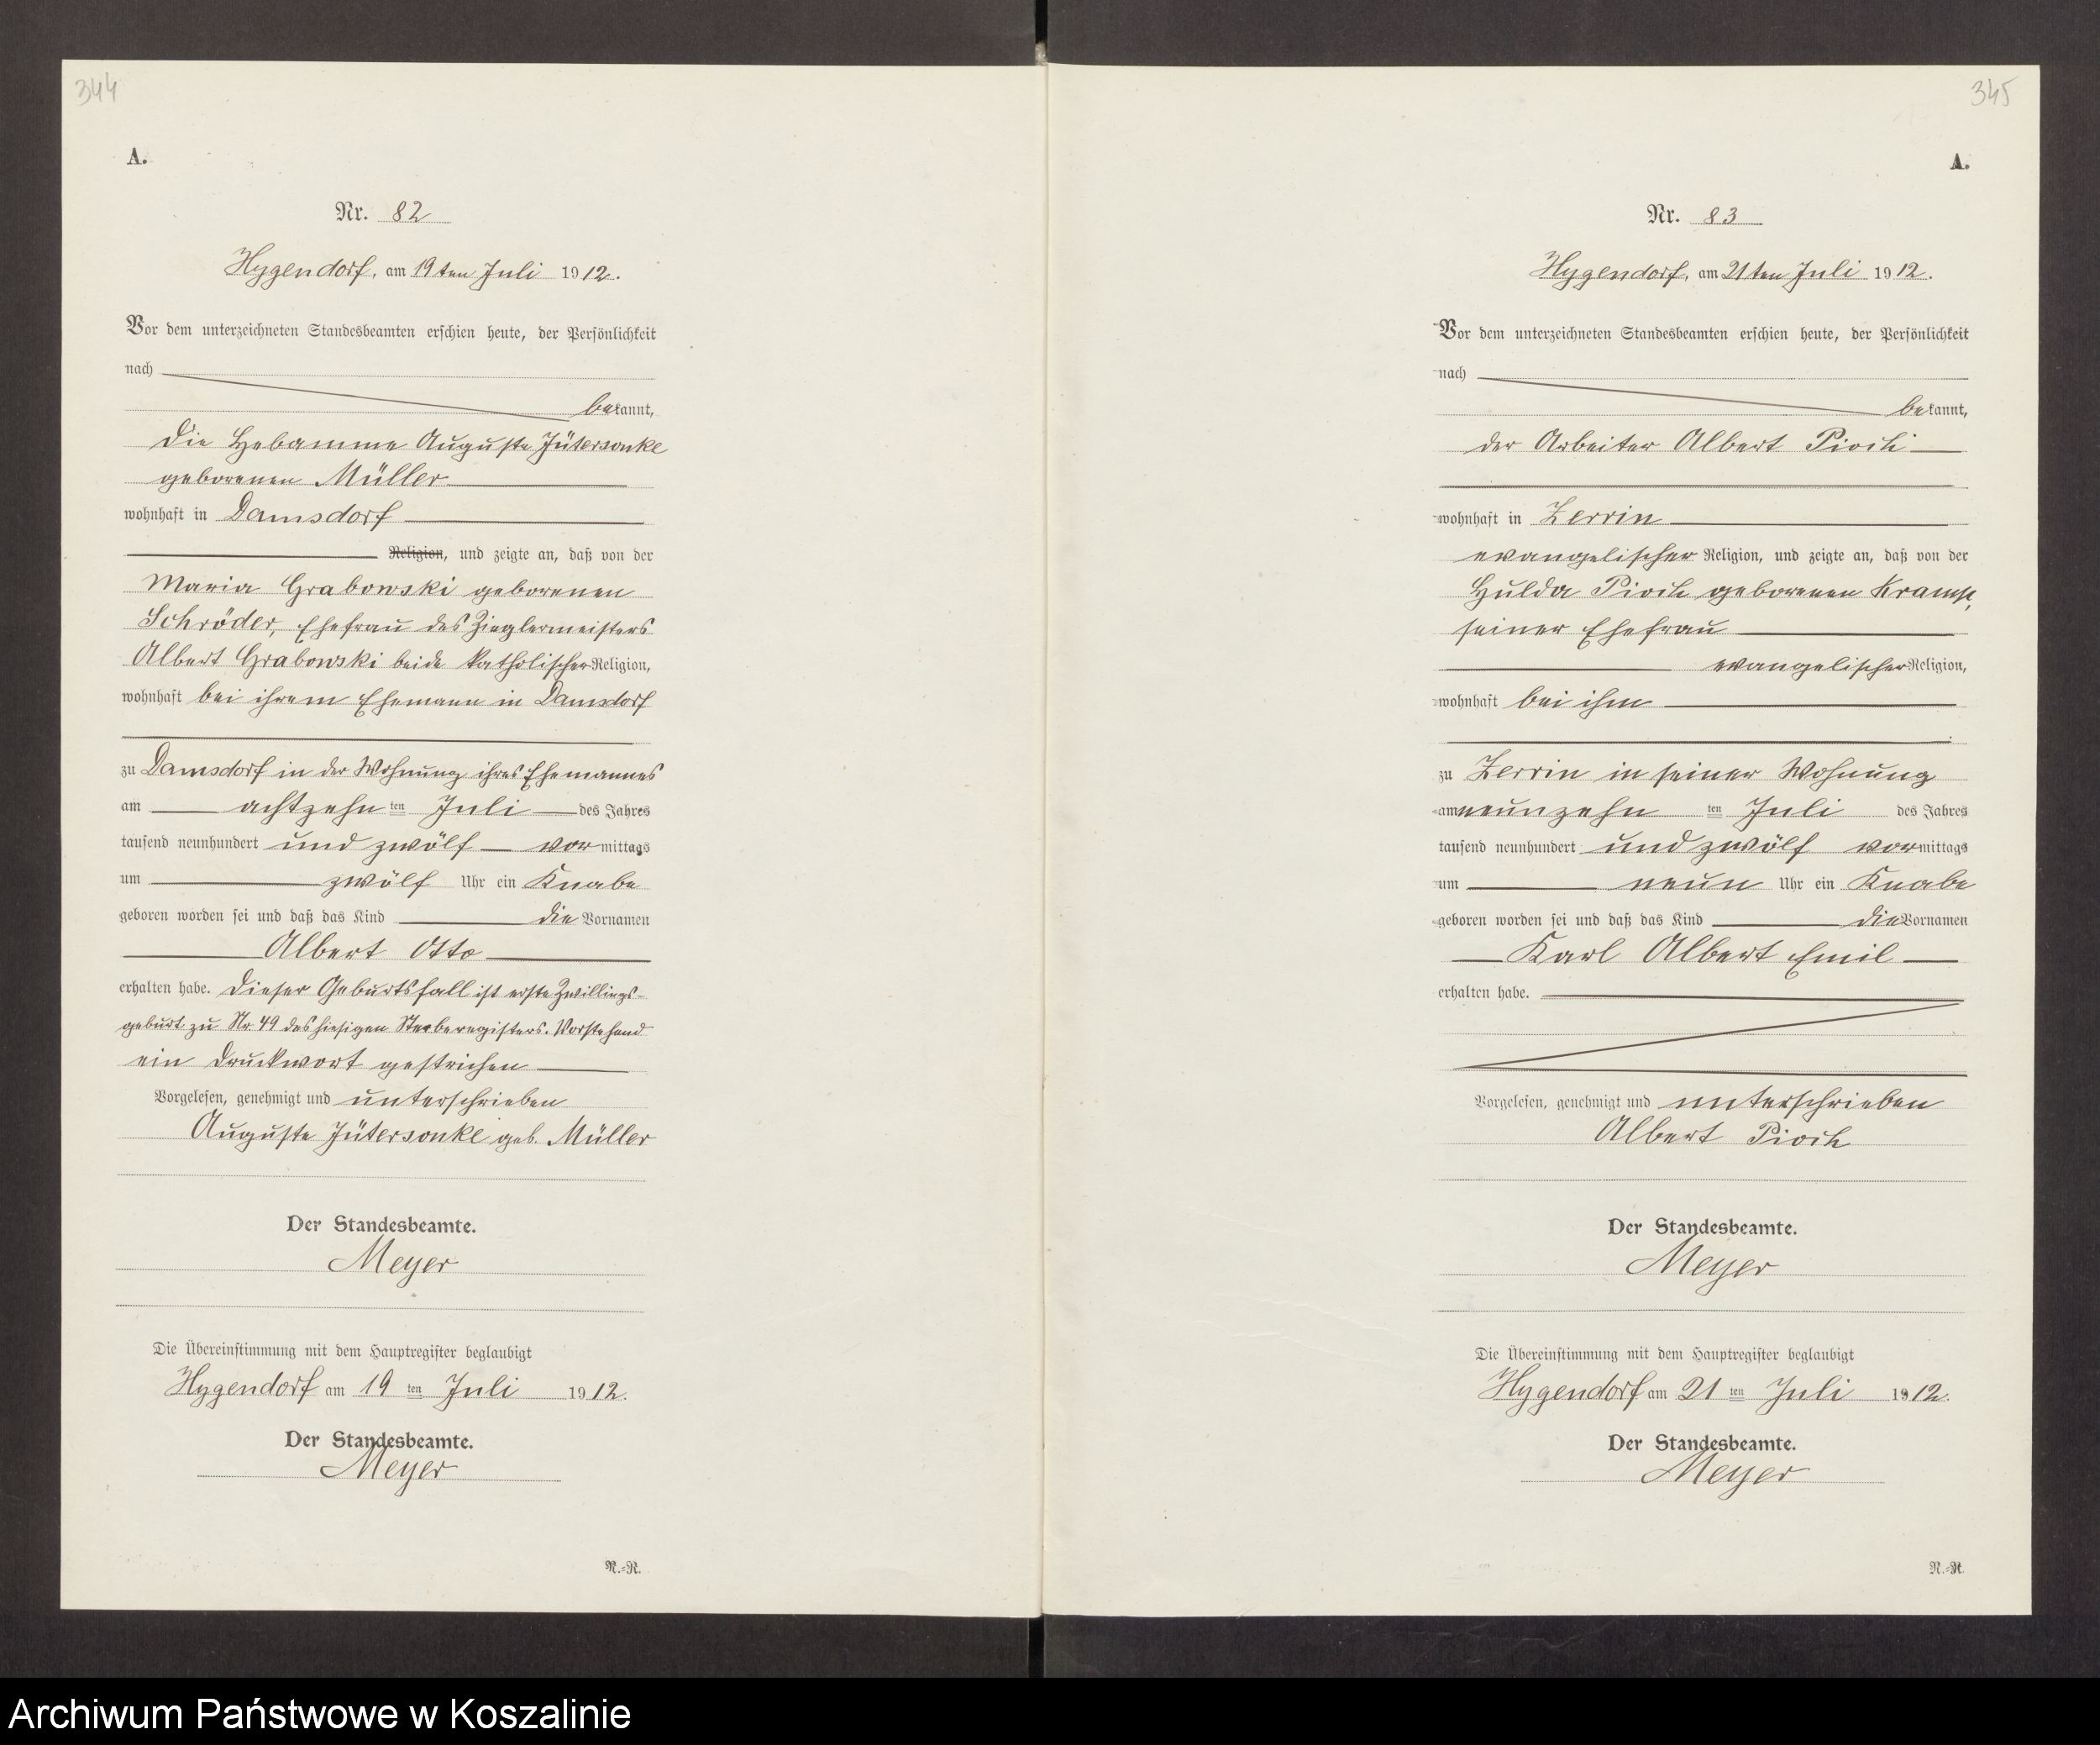 344
A.
Nr. 82
Hygendorf, am 19ten Juli 1912.
Vor dem unterzeichneten Standesbeamten erschien heute, der Persönlichkeit
nach
bekannt,
die Hebamme Auguste Jütersonke
geborenen Müller
wohnhaft in Damsdorf
Religion, und zeigte an, daß von der
Maria Grabowski geborenen
Schröder, Ehefrau des Zieglermeisters
Albert Grabowski beide katholischer Religion,
wohnhaft bei ihrem Ehemann in Damsdorf
zu Damsdorf in der Wohnung ihres Ehemannes
am achtzehnten Juli des Jahres
tausend neunhundert und zwölf vormittags
um zwölf Uhr ein Knabe
geboren worden sei und daß das Kind die Vornamen
Albert Otto
erhalten habe. Dieser Geburtsfall ist erste Zwillings-
geburt zu Nr 49 des hiesigen Sterberegisters. Vorstehend
ein Druckwort gestrichen
Vorgelesen, genehmigt und unterschrieben
Auguste Jütersonke geb. Müller
Der Standesbeamte.
Meyer
Die Übereinstimmung mit dem Hauptregister beglaubigt
Hygendorf am 19ten Juli 1912.
Der Standesbeamte.
Meyer
N.-R.
345
A.
Nr. 83
Hygendorf, am 21ten Juli 1912.
Vor dem unterzeichneten Standesbeamten erschien heute, der Persönlichkeit
nach
bekannt,
der Arbeiter Albert Pioch
wohnhaft in Zerrin
evangelischer Religion, und zeigte an, daß von der
Hulda Pioch geborenen Kramp,
seiner Ehefrau
evangelischer Religion,
wohnhaft bei ihm
zu Zerrin in seiner Wohnung
am neunzehnten Juli des Jahres
tausend neunhundert und zwölf vormittags
um neun Uhr ein Knabe
geboren worden sei und daß das Kind die Vornamen
Karl Albert Emil
erhalten habe.
Vorgelesen, genehmigt und unterschrieben
Albert Pioch
Der Standesbeamte.
Meyer
Die Übereinstimmung mit dem Hauptregister beglaubigt
Hygendorf am 21ten Juli 1912.
Der Standesbeamte.
Meyer
N.-R.
Archiwum Państwowe w Koszalinie